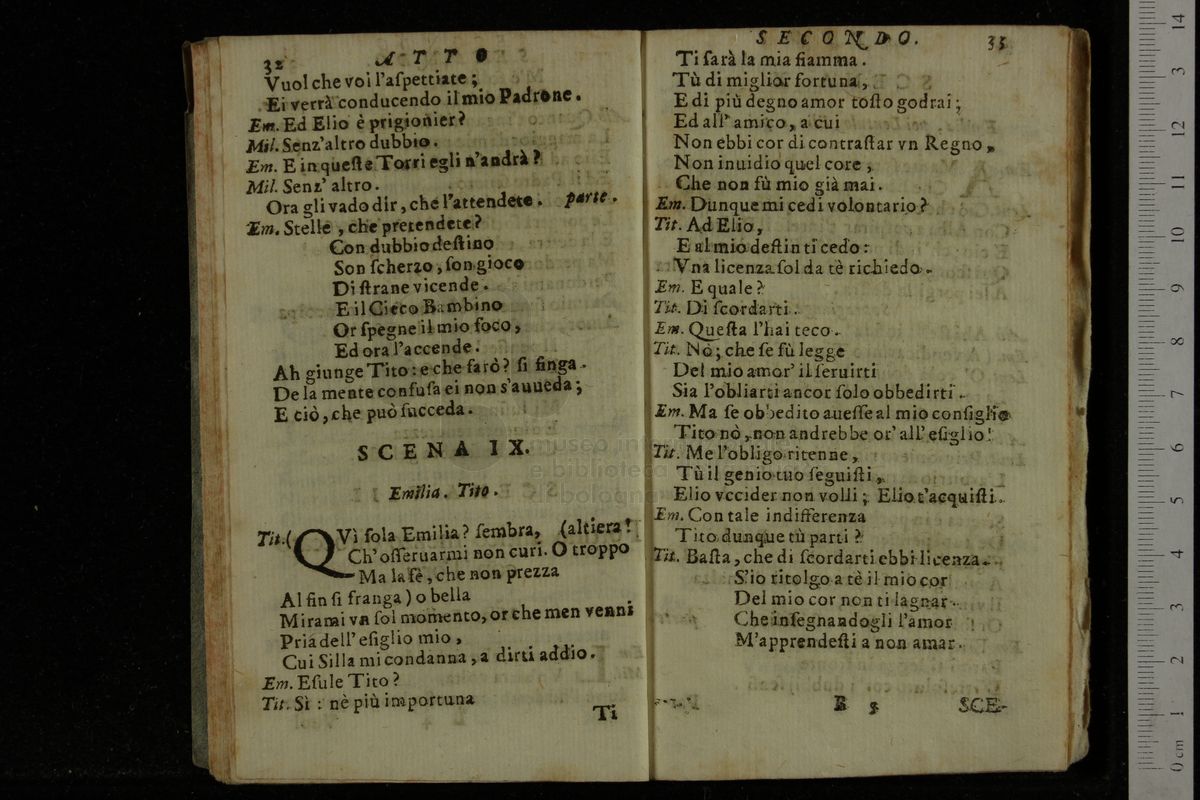 32 ATTO
Vuol che voi l'aſpettiate ;
Ei verrà conducendo il mio Padrone .
Em. Ed Elio è prigionier ?
Mil. Senz'altro dubbio .
Em. E in queſte Torri egli n'andrà ?
Mil. Senz' altro .
Ora gli vado dir , che l'attendete . parte .
Em. Stelle , che pretendete ?
Con dubbio deſtino
Son ſcherzo , ſon gioco
Di ſtrane vicende .
E il Cieco Bambino
Or ſpegne il mio foco ,
Ed ora l'accende .
Ah giunge Tito : e che farò ? ſi finga .
De la mente confuſa ei non s'auueda ;
E ciò , che può ſucceda .
SCENA IX.
Emilia . Tito .
Tit. ( QVì ſola Emilia ? ſembra, (altiera !
Ch' oſſeruarmi non curi . O troppo
Ma la fè , che non prezza
Al fin ſi franga ) o bella
Mirami vn ſol momento, or che men venni
Pria dell' eſiglio mio ,
Cui Silla mi condanna , a dirti addio .
Em. Eſule Tito ?
Tit. Sì : nè più importuna
Ti
SECONDO. 33
Ti ſarà la mia fiamma .
Tù di miglior fortuna ,
E di più degno amor toſto godrai ;
Ed all' amico , a cui
Non ebbi cor di contraſtar vn Regno ,
Non inuidio quel core ,
Che non fù mio già mai .
Em. Dunque mi cedi volontario ?
Tit. Ad Elio ,
E al mio deſtin ti cedo :
Vna licenza ſol da tè richiedo .
Em. E quale ?
Tit. Di ſcordarti .
Em. Queſta l'hai teco .
Tit. Nò ; che ſe fù legge
Del mio amor' il ſeruirti
Sia l'obliarti ancor ſolo obbedirti .
Em. Ma ſe obbedito aueſſe al mio conſiglio
Tito nò , non andrebbe or' all' eſiglio !
Tit. Me l'obligo ritenne ,
Tù il genio tuo ſeguiſti ,
Elio vccider non volli ; Elio t'acquiſti .
Em. Con tale indifferenza
Tito dunque tù parti ?
Tit. Baſta , che di ſcordarti ebbi licenza .
S'io ritolgo a tè il mio cor
Del mio cor non ti lagnar .
Che inſegnandogli l'amor
M'apprendeſti a non amar .
B 5 SCE-